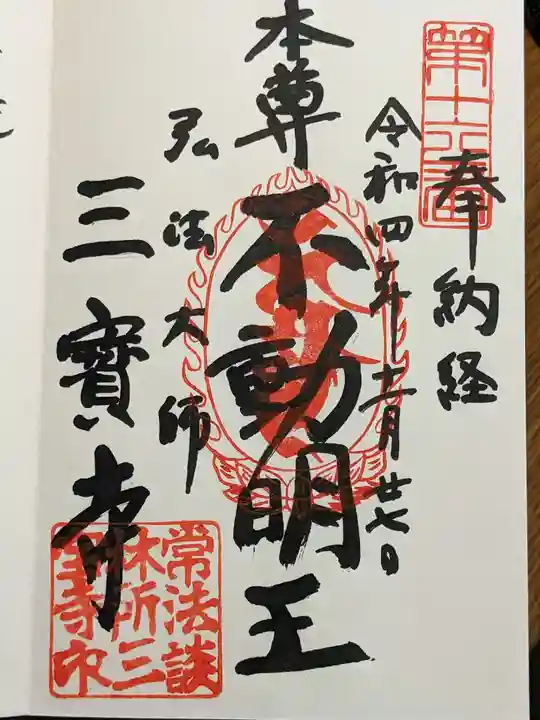 奉納経
令和四年十二月廿七日
本尊
不動明王
弘法大師
三寳寺
常法談
林所三
寳寺印